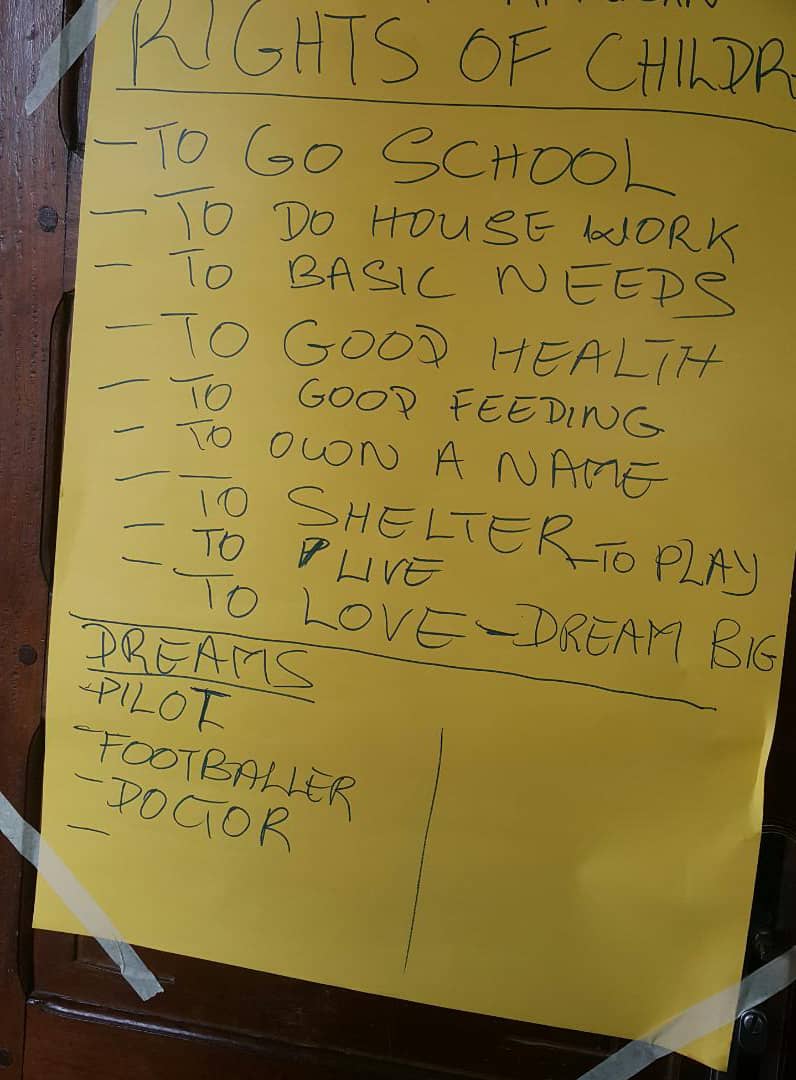 RIGHTS OF CHILDR
- TO GO SCHOOL
- TO DO HOUSE WORK
- TO BASIC NEEDS
- TO GOOD HEALTH
- TO GOOD FEEDING
- TO OWN A NAME
- TO SHELTER - TO PLAY
- TO LIVE
- TO LOVE - DREAM BIG
DREAMS
- PILOT
- FOOTBALLER
- DOCTOR
-